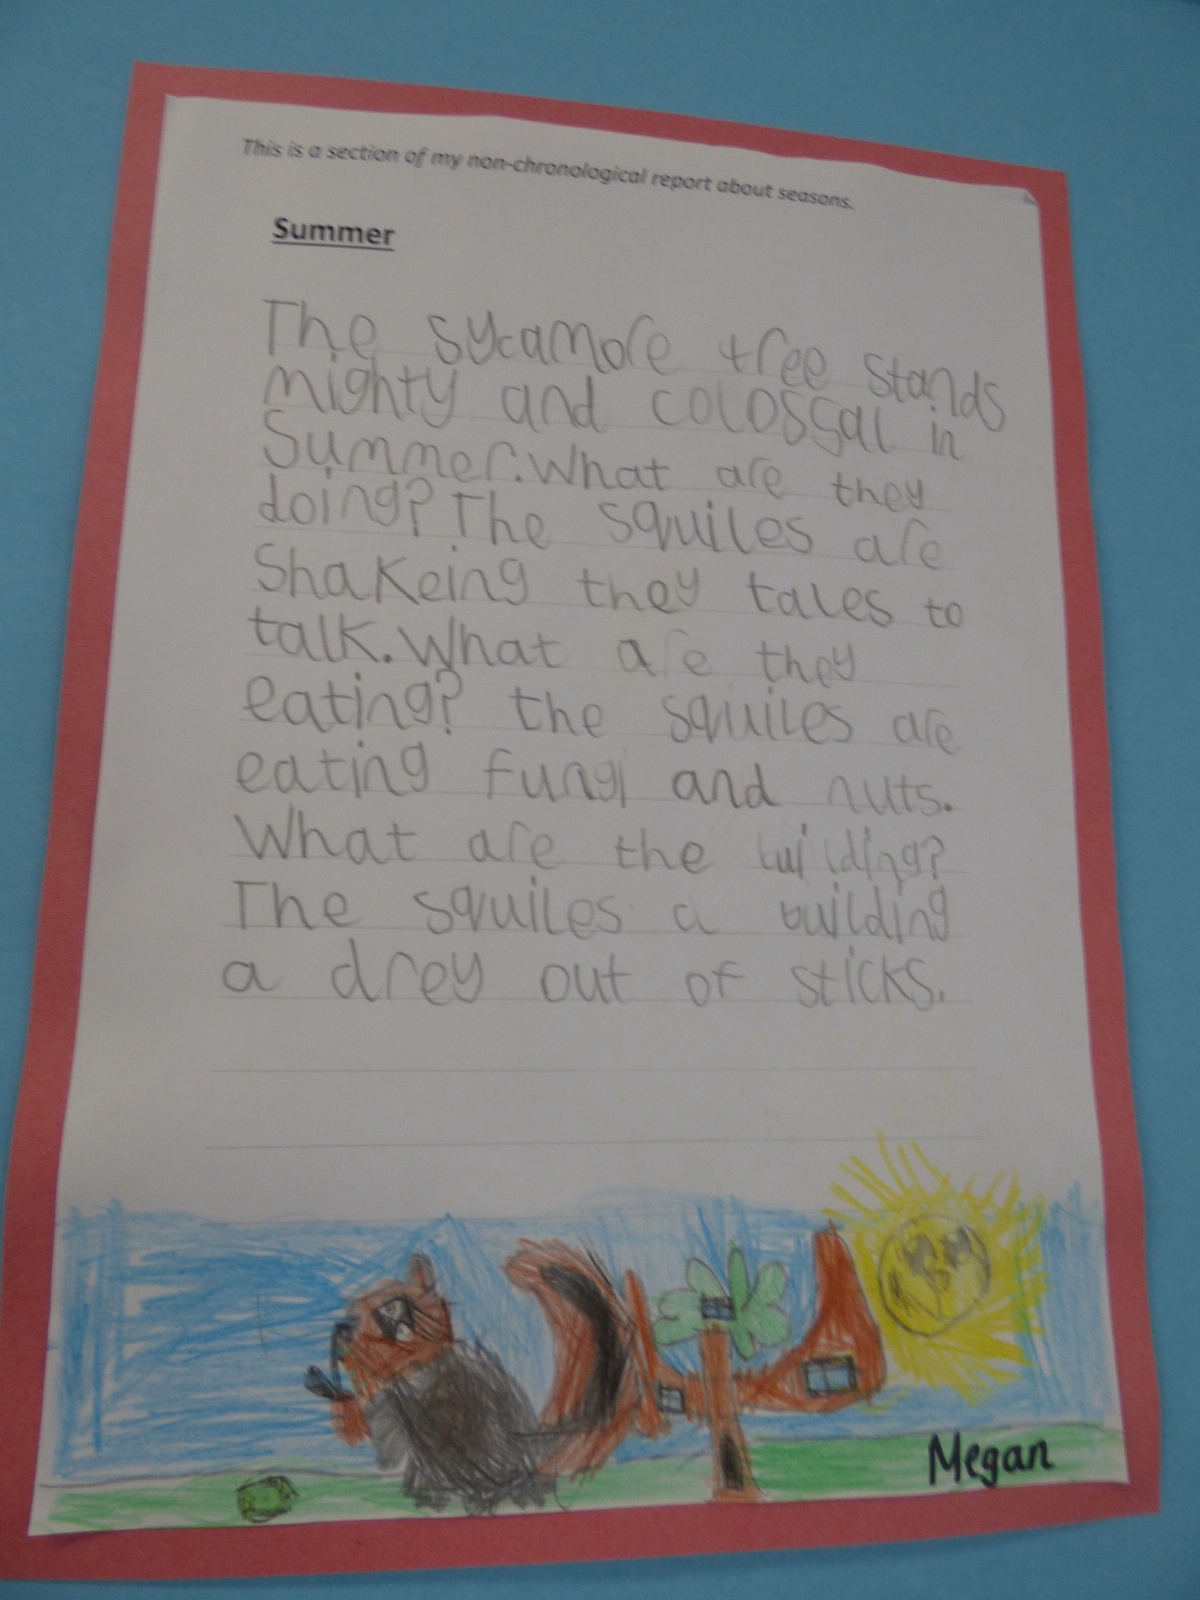 This is a section of my non-chronological report about seasons.
Summer
The sycamore tree stands
mighty and colossal in
Summer. What are they
doing? The squiles are
Shakeing they tales to
talk. What are they
eating? the squiles are
eating fungi and nuts.
What are the building?
The squiles a building
a drey out of sticks.
Megan